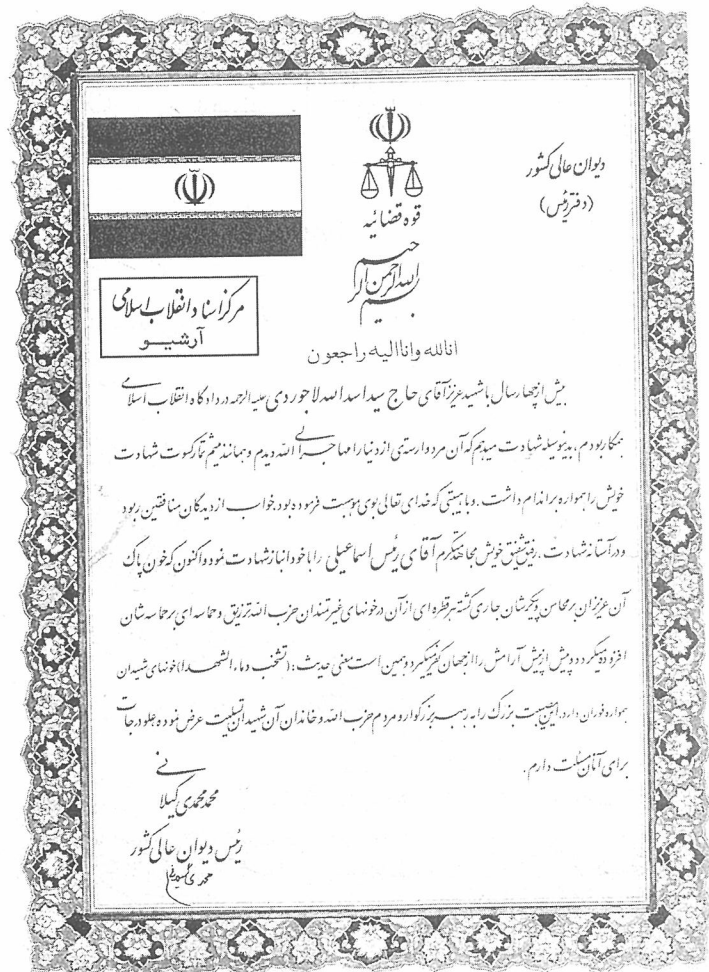 دیوان عالی کشور
(دفتر رئیس)
قوه قضائیه
بسم الله الرحمن الرحیم
مرکز اسناد انقلاب اسلامی
آرشیو
انالله وانا الیه راجعون
بیش از چهار سال با شهید عزیز آقای حاج سید اسدالله لاجوردی علیه الرحمه در دادگاه انقلاب اسلامی
همکار بودم، بدینوسیله شهادت میدهم که آن مرد وارسته‌ی از دنیا را مهاجر الی الله دیدم و همانند میثم تمار کسوت شهادت
خویش را همواره بر اندام داشت. و با هیبتی که خدای تعالی بوی موهبت فرموده بود، خواب از دیدگان منافقین ربود
و در آستانه شهادت، رفیق شفیق خویش مجاهد مکرم آقای رئیس اسماعیلی را با خود انباز شهادت نمود و اکنون که خون پاک
آن عزیزان بر محاسن و پیکرشان جاری گشته هر قطره ای از آن در خونهای غیرتمندان حزب الله تزریق و حماسه ای بر حماسه شان
افزوده میگردد و بیش از پیش آرامش را از جهان کفر میگیرد و همین است معنی حدیث: (تشخب دماء الشهدا) خونهای شهیدان
همواره فوران دارد. این مصیبت بزرگ را به رهبر بزرگوار و مردم حزب الله و خاندان آن شهیدان تسلیت عرض نموده علو درجات
برای آنان مسئلت دارم.
محمد محمدی گیلانی
رئیس دیوان عالی کشور